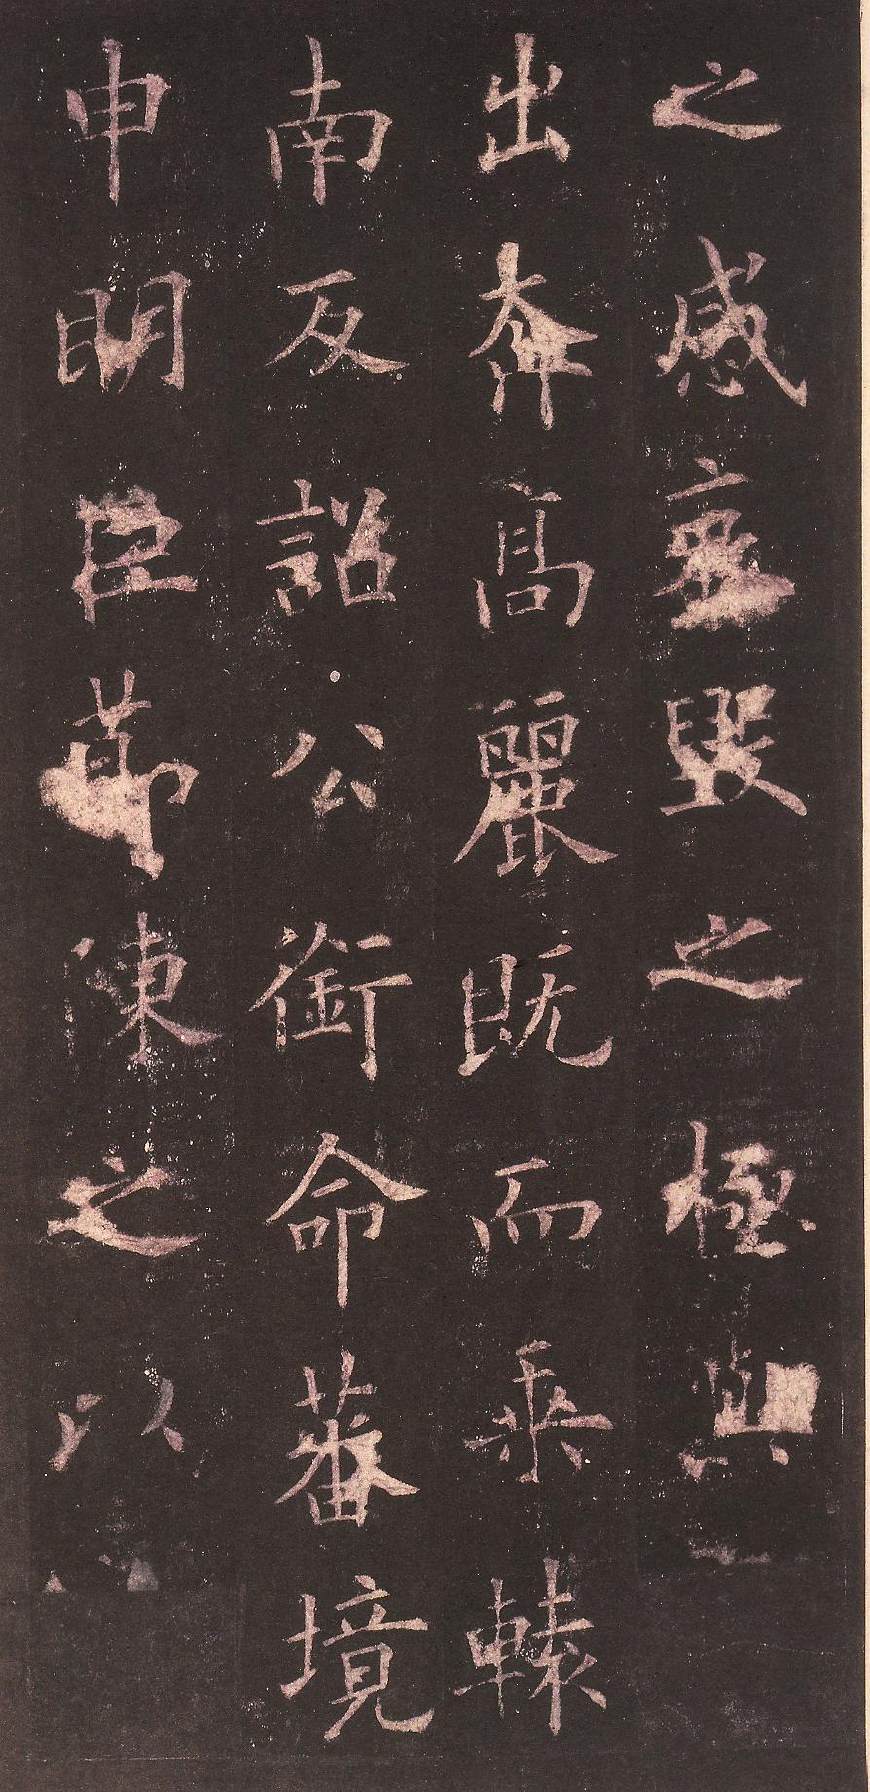 之感亟毀之極與
出奔高麗既而乘轅
南反詔公銜命蕃境
申明臣節陳之以